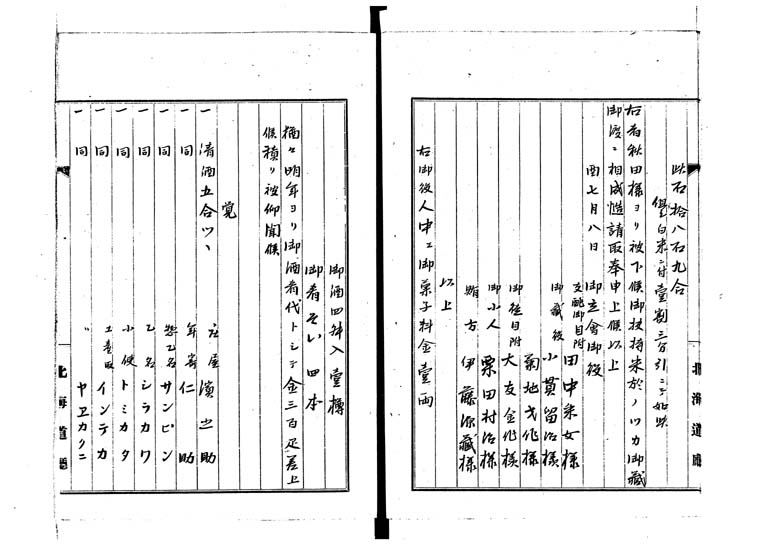 此石拾八石九合
但白米ニ付壹割三分引ニ而如此
右者秋田様ヨリ被下候御扶持米於ノツカ御藏
御渡ニ相成慥請取奉申上候以上
酉七月八日
御立會御役
田中条女様
支配御目附
小貫留治様
御藏役
菊地戈作様
御徒目附
大友金作様
御小人
栗田村治様
賄方
伊藤源藏様
以上
右御役人中ヱ御菓子料金壹両
御酒四舛入壹樽
御肴そい四本
猶々明年ヨリ御酒肴代トシテ金三百疋差上
候積リ被仰聞候
覚
一清酒五合ツヽ
庄屋
濱之助
一同
年寄
仁助
一同
惣乙名
サンピン
一同
乙名
シラカワ
一同
小使
トミカタ
一同
土産取
インテカ
一同
〃
ヤヱカクニ
北海道廳
北海道廳